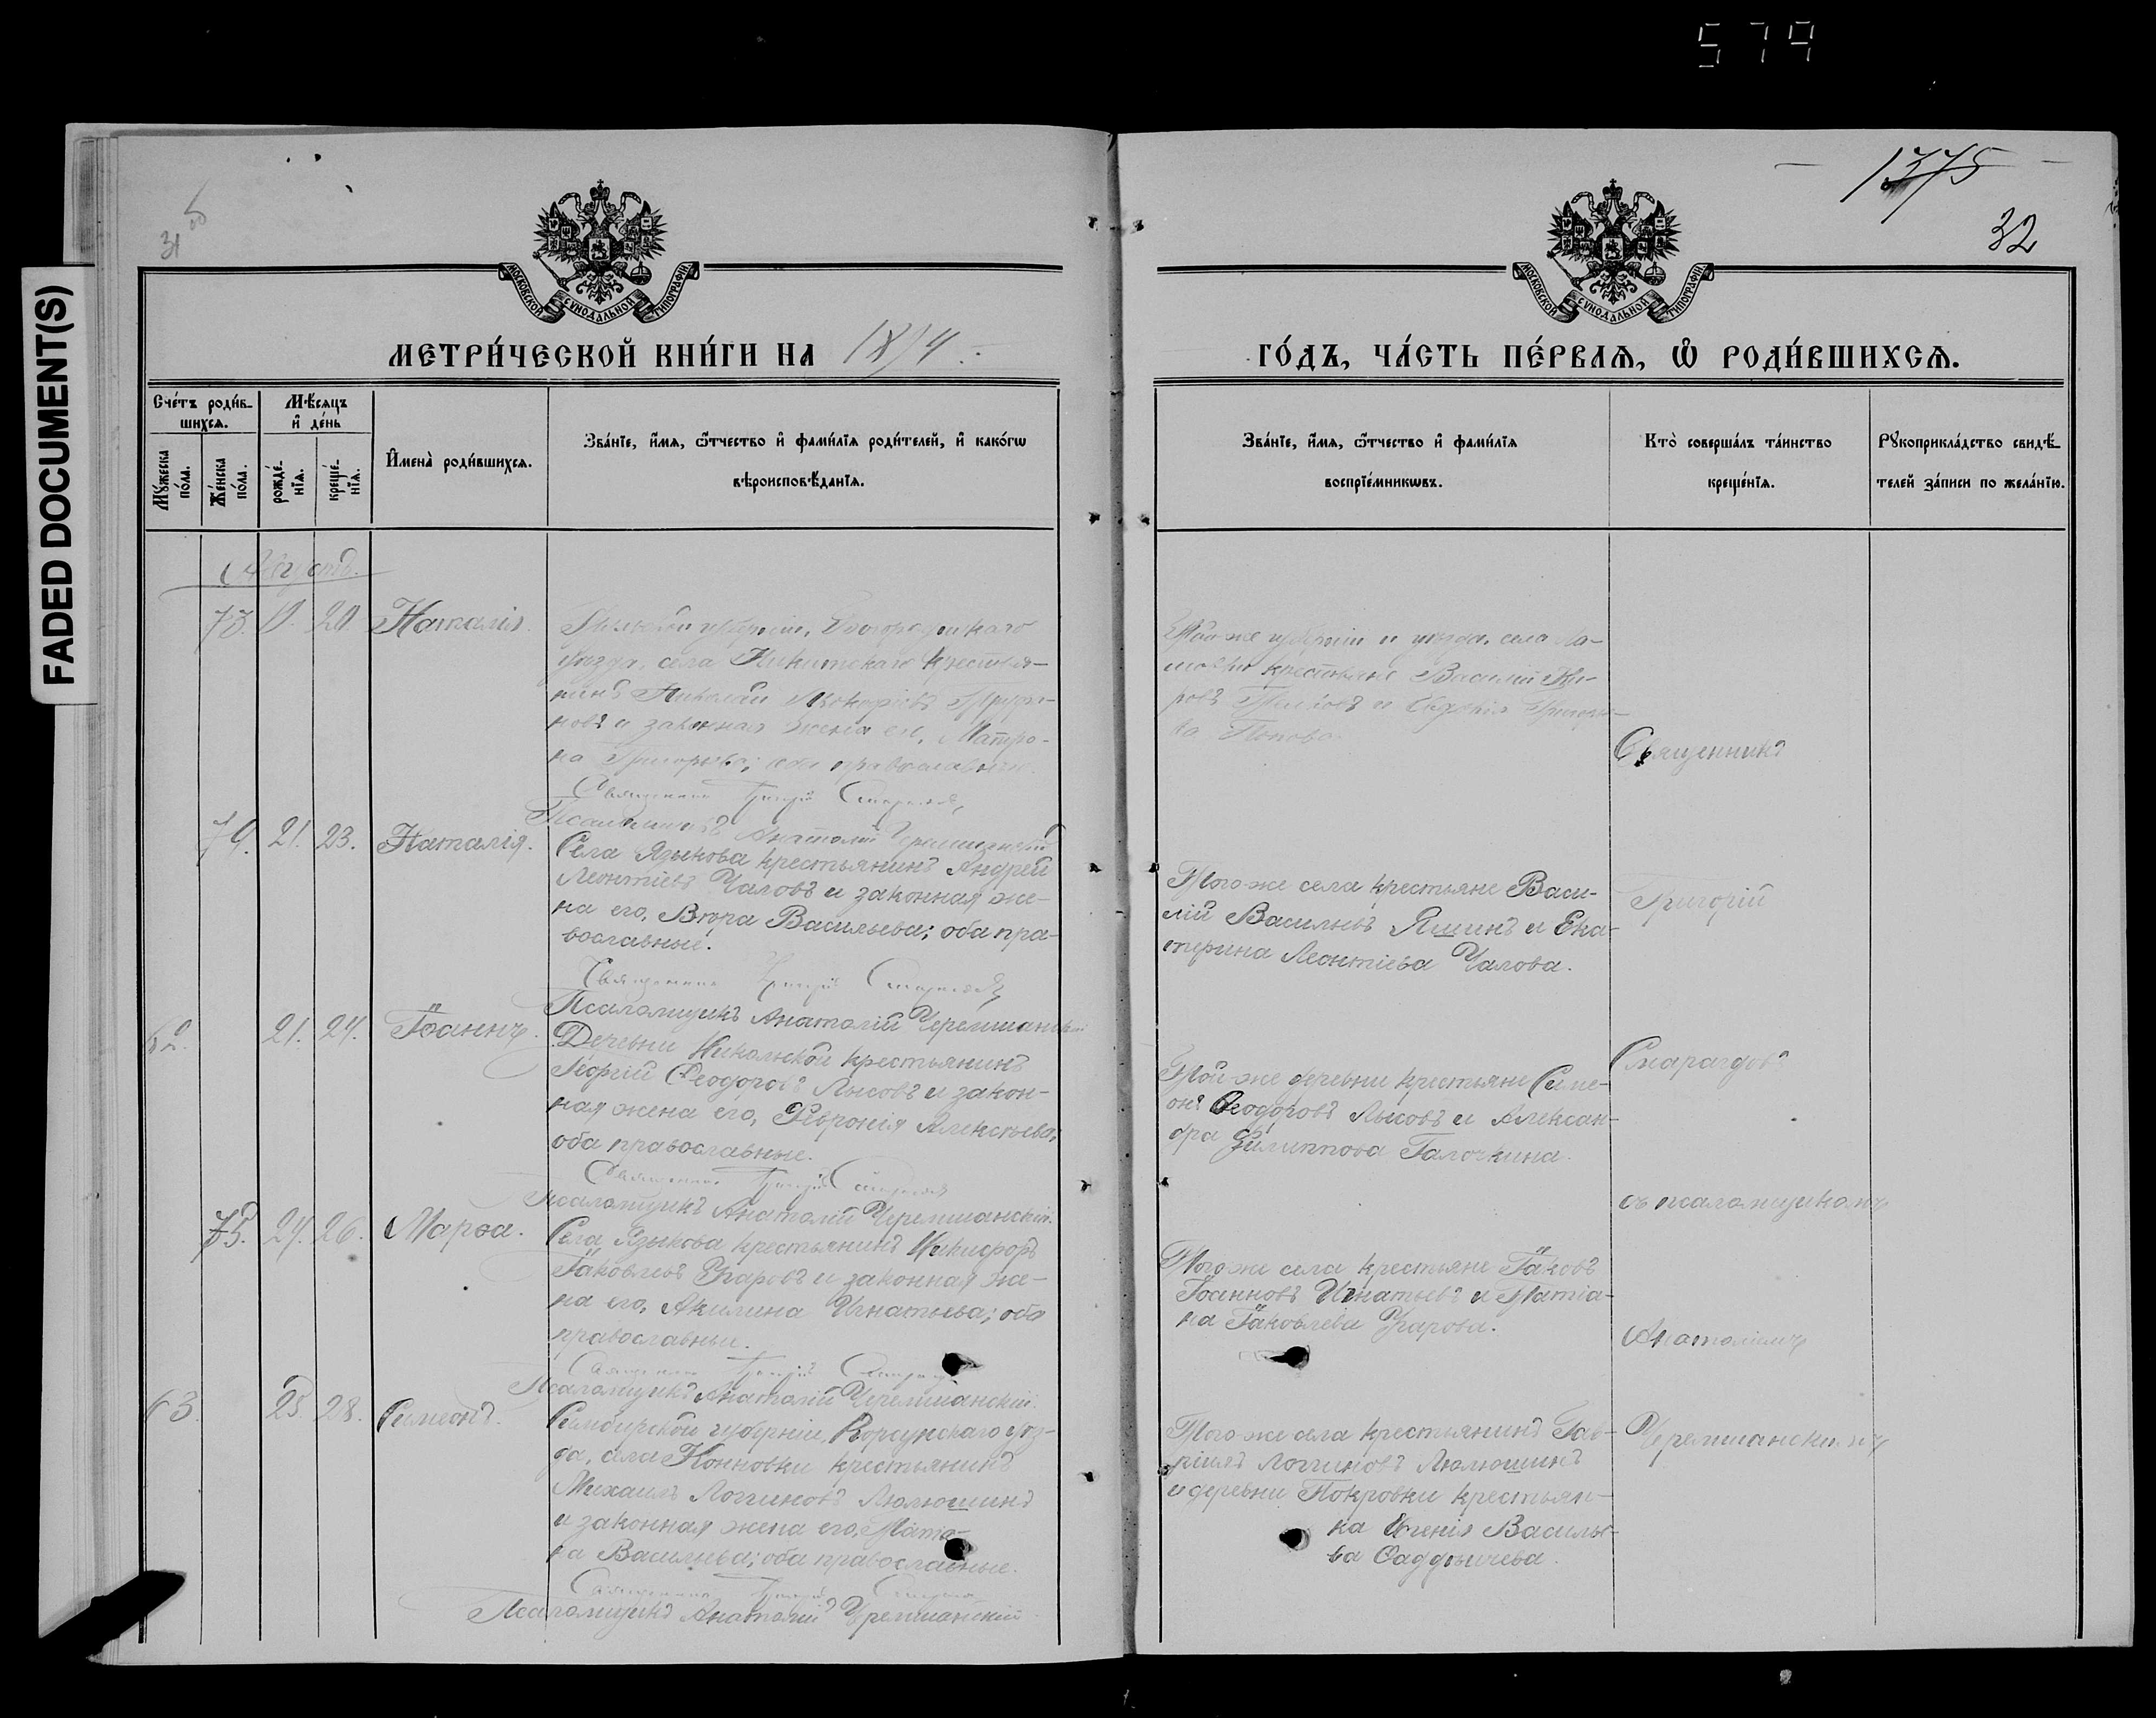 579
FADED DOCUMENT(S)
1375
32
31
МОСКОВСКОЙ СѴНОДАЛЬНОЙ ТИПОГРАФІИ.
МОСКОВСКОЙ СѴНОДАЛЬНОЙ ТИПОГРАФІИ.
МЕТРИ́ЧЕСКОЙ КНИ́ГИ НА
ГО́ДЪ, ЧА́СТЬ ПЕ́РВАѦ, Ѽ РОДИ́ВШИХСѦ.
Сче́тъ роди́в-
шихсѧ.
Мѣ́сѧцъ
и҆ де́нь
Мꙋ́жеска
по́ла.
Же́нска
по́ла.
рожде́-
нїѧ.
креще́-
нїѧ.
И҆мена̀ роди́вшихсѧ.
Зва́нїе, и҆́мѧ, ѻ҆́тчество и҆ фами́лїѧ роди́телей, и҆ како́гѡ
вѣроисповѣ́данїѧ.
Зва́нїе, и҆́мѧ, ѻ҆́тчество и҆ фами́лїѧ
воспрїе́мникѡвъ.
Кто̀ соверша́лъ та́инство
креще́нїѧ.
Рꙋкоприкла́дство свидѣ́-
телей за́писи по жела́нїю.
Августъ.
73. 20 Наталія.
губерніи, Богородицкаго
уѣзда, села Никитскаго крестья-
нинъ Николай
новъ и законная жена его, Матро-
на Григорьева; оба православные.
Той же губерніи и уѣзда, села
крестьяне Василій
Попова.
Священникъ
Священникъ Григорій Смарагдовъ
Псаломщикъ Анатолій Черемшанскій
74. 21. 23. Наталія.
Села Языкова крестьянинъ Андрей
Леонтіевъ Чаловъ и законная же-
на его, Вѣра Васильева; оба пра-
вославные.
Того же села крестьяне Васи-
лій Васильевъ Яшинъ и Ека-
терина Леонтіева Чалова.
Григорій
Священникъ Григорій Смарагдовъ
Псаломщикъ Анатолій Черемшанскій
62. 21. 24. Іоаннъ.
Деревни Никольской крестьянинъ
Георгій Ѳеодоровъ Лысовъ и закон-
ная жена его, Февронія Алексѣева;
оба православные.
Той же деревни крестьяне Симе-
онъ Ѳеодоровъ Лысовъ и Алексан-
дра Филиппова Галочкина.
Смарагдовъ
Священникъ Григорій Смарагдовъ
Псаломщикъ Анатолій Черемшанскій.
75. 24. 26. Марѳа.
Села Языкова крестьянинъ Никифоръ
Іаковлевъ Угаровъ и законная же-
на его, Акилина Игнатьева; оба
православны.
Того же села крестьяне Іаковъ
Іоанновъ Игнатьевъ и Татіа-
на Іаковлева Угарова.
съ псаломщикомъ
Анатоліемъ
Священникъ Григорій Смарагдовъ
Псаломщикъ Анатолій Черемшанскій.
63. 25. 28. Симеонъ.
Симбирской губерніи, Корсунскаго уѣз-
да, села Конновки крестьянинъ
Михаилъ Логгиновъ Люлюшинъ
и законная жена его, Татіа-
на Васильева; оба православные.
Того же села крестьянинъ Гав-
ріилъ Логгиновъ Люлюшинъ
и деревни Покровки крестьян-
ка Василье-
ва
Черемшанскимъ
Священникъ Григорій
Псаломщикъ Анатолій Черемшанскій